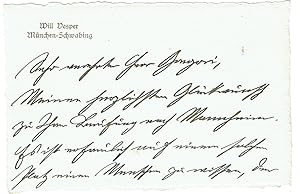 Will Vesper
München-Schwabing
Sehr verehrter Herr Gregori,
Meinen herzlichsten Glückwunsch
zu Ihrer Berufung nach Mannheim.
Es ist erfreulich auf einem solchen
Platz einen Menschen zu wissen, der